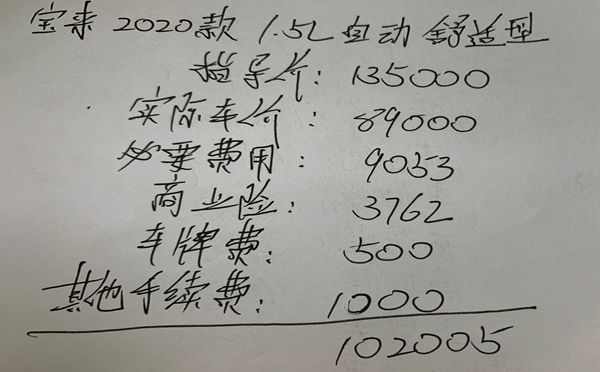 宝来 2020款 1.5L 自动 舒适型
指导价: 135000
实际车价: 89000
必要费用: 9053
商业险: 3762
车牌费: 500
其他手续费: 1000
102005